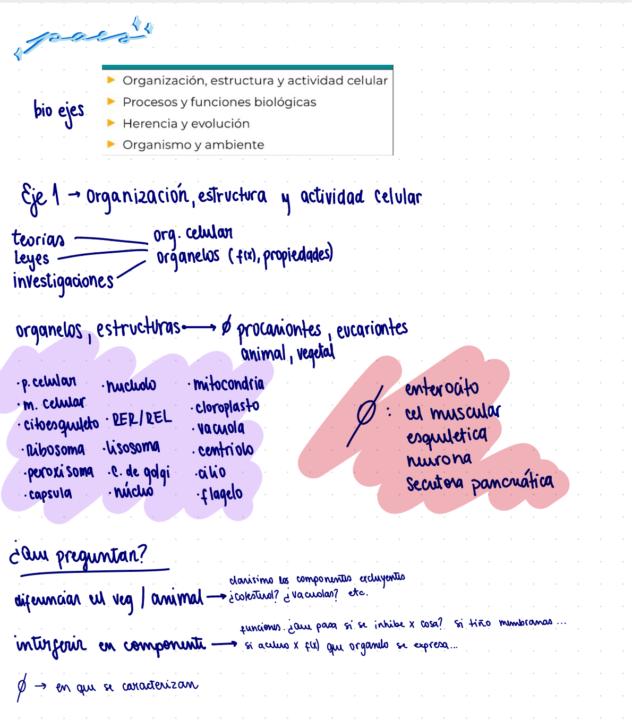 paes
bio ejes
► Organización, estructura y actividad celular
► Procesos y funciones biológicas
► Herencia y evolución
► Organismo y ambiente
Eje 1 → organización, estructura y actividad celular
teorías
Leyes
investigaciones
org. celular
organelos (f(x), propiedades)
organelos, estructuras → ø procariontes, eucariontes
animal, vegetal
·p. celular
·m. celular
·citoesqueleto
·Ribosoma
·peroxisoma
·capsula
·nucleolo
·RER/REL
·lisosoma
·C. de golgi
·núcleo
·mitocondria
·cloroplasto
·vacuola
·centriolo
·cilio
·flagelo
ø: enterocito
cel muscular
esqueletica
neurona
Secretora pancreática
¿Que preguntan?
diferenciar cel veg / animal → clarisimo los componentes excluyentes
¿colesterol? ¿vacuolas? etc.
interferir en componente → funciones. ¿Que pasa si se inhibe x cosa? Si tiño membranas...
si activo x f(x) que organelo se expresa...
ø → en que se caracterizan